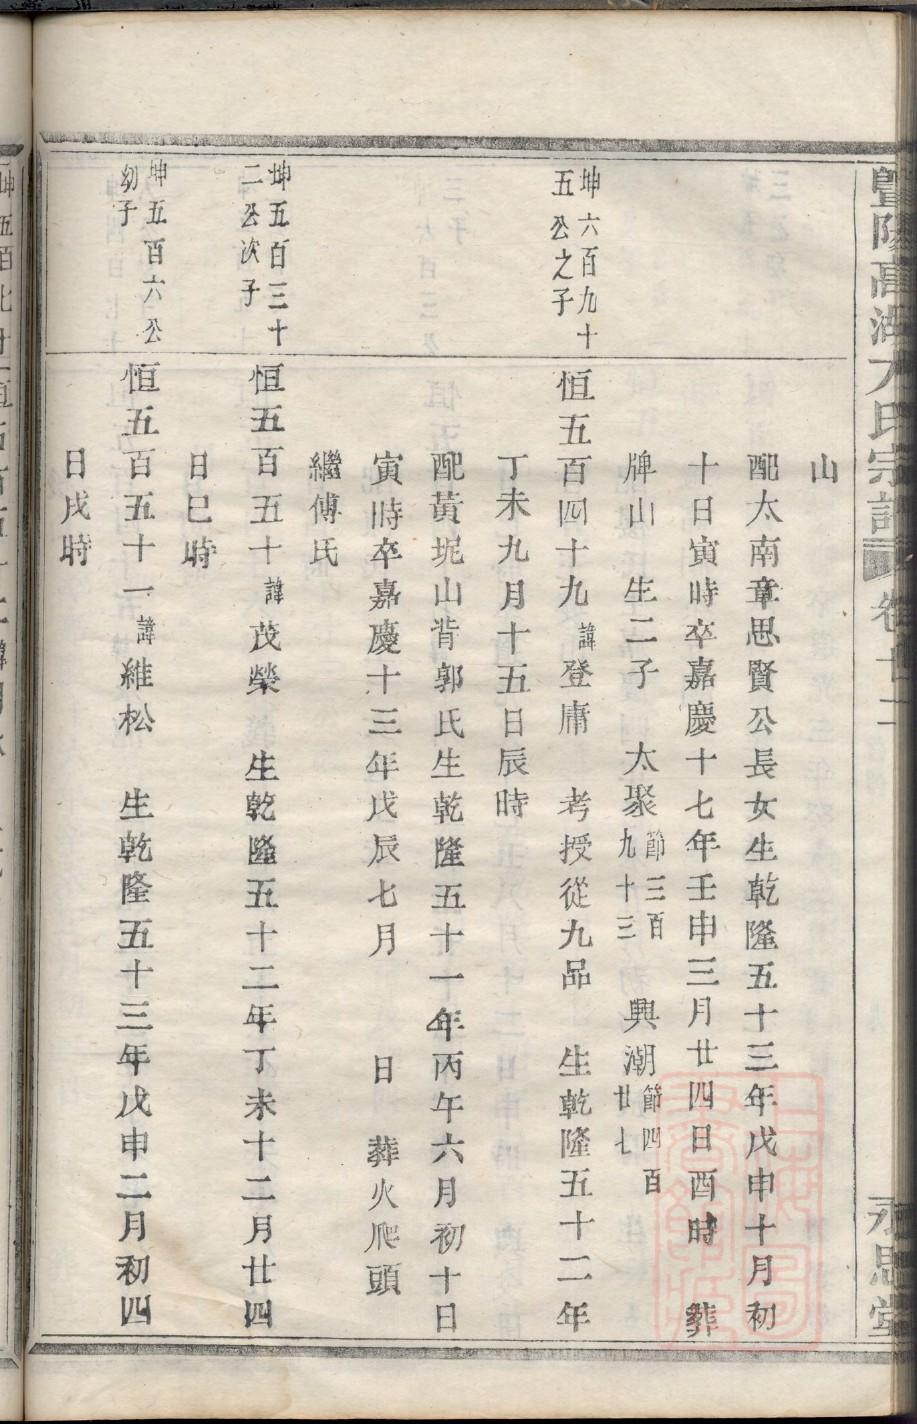 暨陽高湖方氏宗譜 卷廿二 永思堂
山
配太南章思賢公長女生乾隆五十三年戊申十月初
十日寅時卒嘉慶十七年壬申三月廿四日酉時 葬
牌山 生二子 太聚節三百九十三 興潮節四百廿七
坤六百九十五公之子
恒五百四十九諱登庸 考授從九品 生乾隆五十二年
丁未九月十五日辰時
配黃坭山背郭氏生乾隆五十一年丙午六月初十日
寅時卒嘉慶十三年戊辰七月 日 葬火爬頭
繼傅氏
坤五百三十二公次子
恒五百五十諱茂榮 生乾隆五十二年丁未十二月廿四
日巳時
坤五百六公幼子
恒五百五十一諱維松 生乾隆五十三年戊申二月初四
日戌時